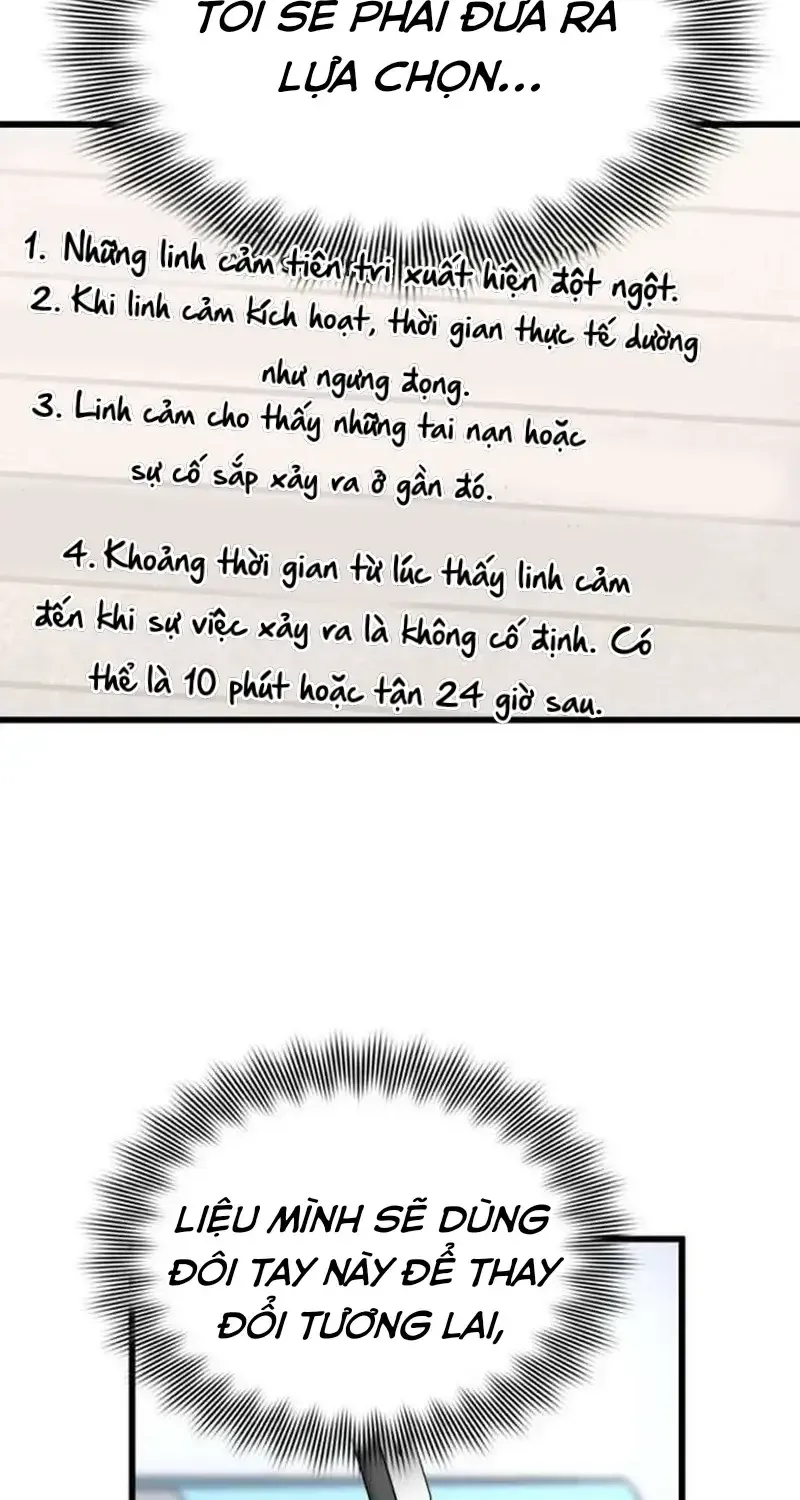 TÔI SẼ PHẢI ĐƯA RA
LỰA CHỌN...
1. Những linh cảm tiên tri xuất hiện đột ngột.
2. Khi linh cảm kích hoạt, thời gian thực tế dường
như ngưng đọng.
3. Linh cảm cho thấy những tai nạn hoặc
sự cố sắp xảy ra ở gần đó.
4. Khoảng thời gian từ lúc thấy linh cảm
đến khi sự việc xảy ra là không cố định. Có
thể là 10 phút hoặc tận 24 giờ sau.
LIỆU MÌNH SẼ DÙNG
ĐÔI TAY NÀY ĐỂ THAY
ĐỔI TƯƠNG LAI,